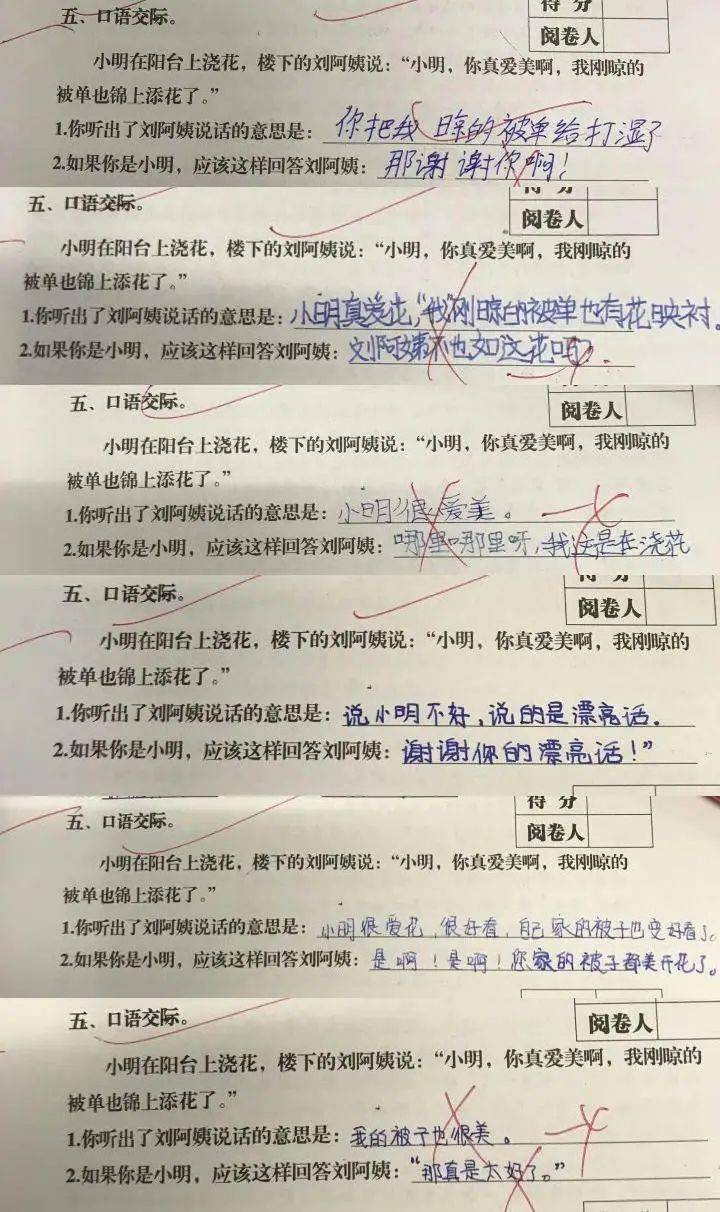 得分
五、口语交际。
阅卷人
小明在阳台上浇花，楼下的刘阿姨说：“小明，你真爱美啊，我刚晾的
被单也锦上添花了。”
1.你听出了刘阿姨说话的意思是：你把我晾的被单给打湿了
2.如果你是小明，应该这样回答刘阿姨：那谢谢你啊！
得分
五、口语交际。
阅卷人
小明在阳台上浇花，楼下的刘阿姨说：“小明，你真爱美啊，我刚晾的
被单也锦上添花了。”
1.你听出了刘阿姨说话的意思是：小明真爱花，“我”刚晾的被单也有花映衬。
2.如果你是小明，应该这样回答刘阿姨：刘阿姨不也如这花吗？
五、口语交际。
阅卷人
小明在阳台上浇花，楼下的刘阿姨说：“小明，你真爱美啊，我刚晾的
被单也锦上添花了。”
1.你听出了刘阿姨说话的意思是：小明很爱美。
2.如果你是小明，应该这样回答刘阿姨：哪里哪里呀，我这是在浇花
得分
五、口语交际。
阅卷人
小明在阳台上浇花，楼下的刘阿姨说：“小明，你真爱美啊，我刚晾的
被单也锦上添花了。”
1.你听出了刘阿姨说话的意思是：说小明不好，说的是漂亮话．
2.如果你是小明，应该这样回答刘阿姨：谢谢你的漂亮话！”
得分
五、口语交际。
阅卷人
小明在阳台上浇花，楼下的刘阿姨说：“小明，你真爱美啊，我刚晾的
被单也锦上添花了。”
1.你听出了刘阿姨说话的意思是：小明很爱花，很好看，自己家的被子也变好看了。
2.如果你是小明，应该这样回答刘阿姨：是啊！是啊！您家的被子都美开花了。
五、口语交际。
阅卷人
小明在阳台上浇花，楼下的刘阿姨说：“小明，你真爱美啊，我刚晾的
被单也锦上添花了。”
1.你听出了刘阿姨说话的意思是：我的被子也很美。
2.如果你是小明，应该这样回答刘阿姨：“那真是太好了。”